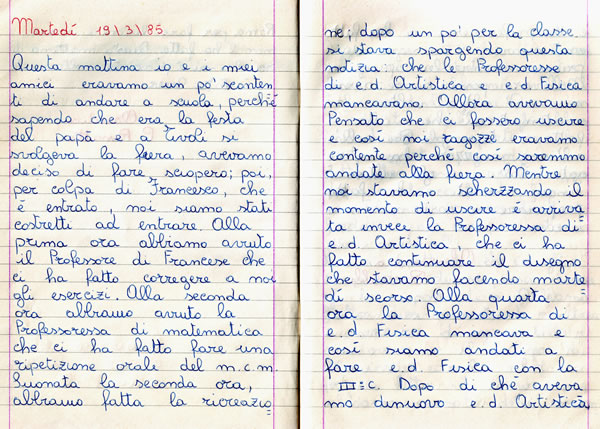 Martedí 19/3/85
Questa mattina io e i miei
amici eravamo un po' sconten
ti di andare a scuola, perché
sapendo che era la festa
del papà e a Tivoli si
svolgeva la fiera, avevamo
deciso di fare, sciopero; poi,
per colpa di Francesco, che
é entrato, noi siamo stati
costretti ad entrare. Alla
prima ora abbiamo avuto
il Professore di Francese che
ci ha fatto corregere a noi
gli esercizi. Alla seconda
ora abbiamo avruto la
Professoressa di matematica
che ci ha fatto fare una
ripetizione orali del m.c.m.
Suonata la seconda ora,
abbiamo fatta la ricreazio
ne; dopo un po' per la classe
si stava spargendo questa
notizia: che le Professoresse
di e.d. Artistica e e.d. Fisica
mancavano. Allora avevamo
Pensato che ci fossero uscire
e cosí noi ragazze eravamo
contente perché cosí saremmo
andate alla fiera. Mentre
noi stavamo scherzzando il
momento di uscire é arriva
ta invece la Professoressa di
e.d. Artistica, che ci ha
fatto continuare il disegno
che stavamo facendo marte
dí scorso. Alla quarta
ora la Professoressa di
e.d. Fisica mancava e
cosí siamo andati a
fare e.d. Fisica con la
III=C. Dopo di ché aveva
mo dinuovo e.d. Artistica,